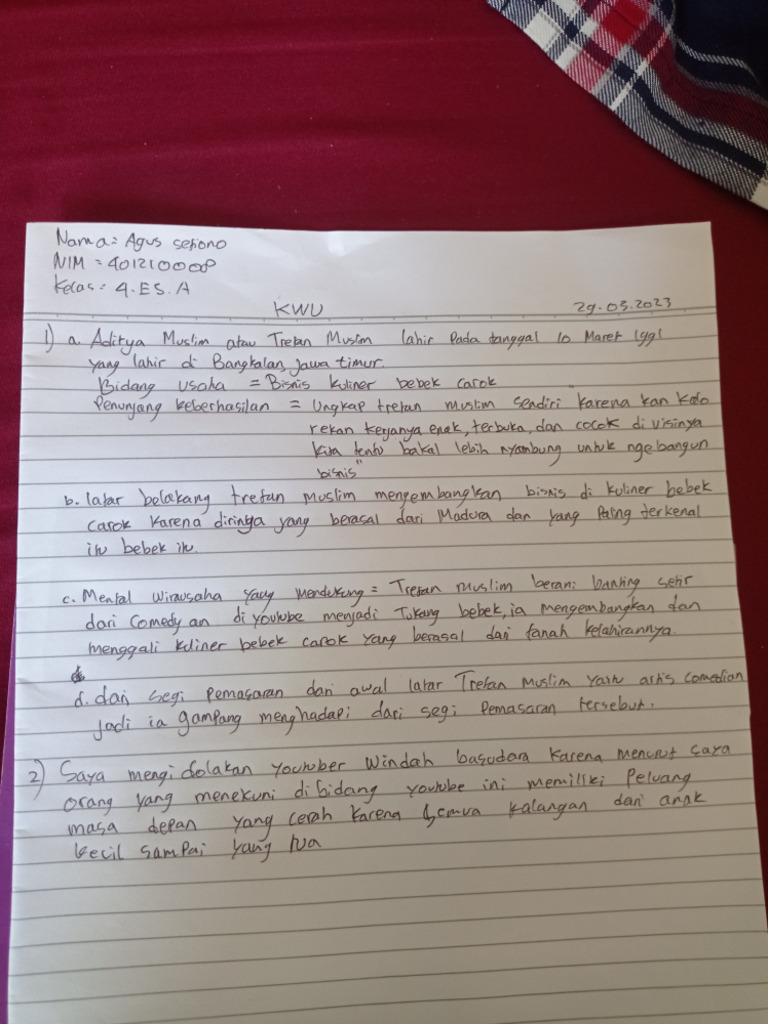 Nama = Agus setiono
NIM = 401210008
Kelas = 4.ES.A
KWU 29.03.2023
1) a. Aditya Muslim atau Tretan Muslim lahir Pada tanggal 10 Maret 1991
yang lahir di Bangkalan, Jawa timur.
Bidang usaha = Bisnis kuliner bebek carok
Penunjang keberhasilan = Ungkap tretan muslim sendiri "karena kan kalo
rekan kerjanya enak, terbuka, dan cocok di visinya
kita tentu bakal lebih nyambung untuk ngebangun
bisnis"
b. latar belakang tretan Muslim mengembangkan bisnis di kuliner bebek
carok karena dirinya yang berasal dari Madura dan yang Paling terkenal
itu bebek itu.
c. Mental wirausaha yang mendukung = Tretan muslim berani banting setir
dari Comedy an di youtube menjadi Tukang bebek, ia mengembangkan dan
menggali kuliner bebek carok yang berasal dari tanah kelahirannya.
d. dari segi pemasaran dari awal latar Tretan Muslim yaitu artis comedian
jadi ia gampang menghadapi dari segi Pemasaran tersebut.
2) Saya mengidolakan youtuber Windah basudara karena menurut saya
orang yang menekuni dibidang youtube ini memiliki Peluang
masa depan yang cerah karena semua kalangan dari anak
kecil sampai yang tua